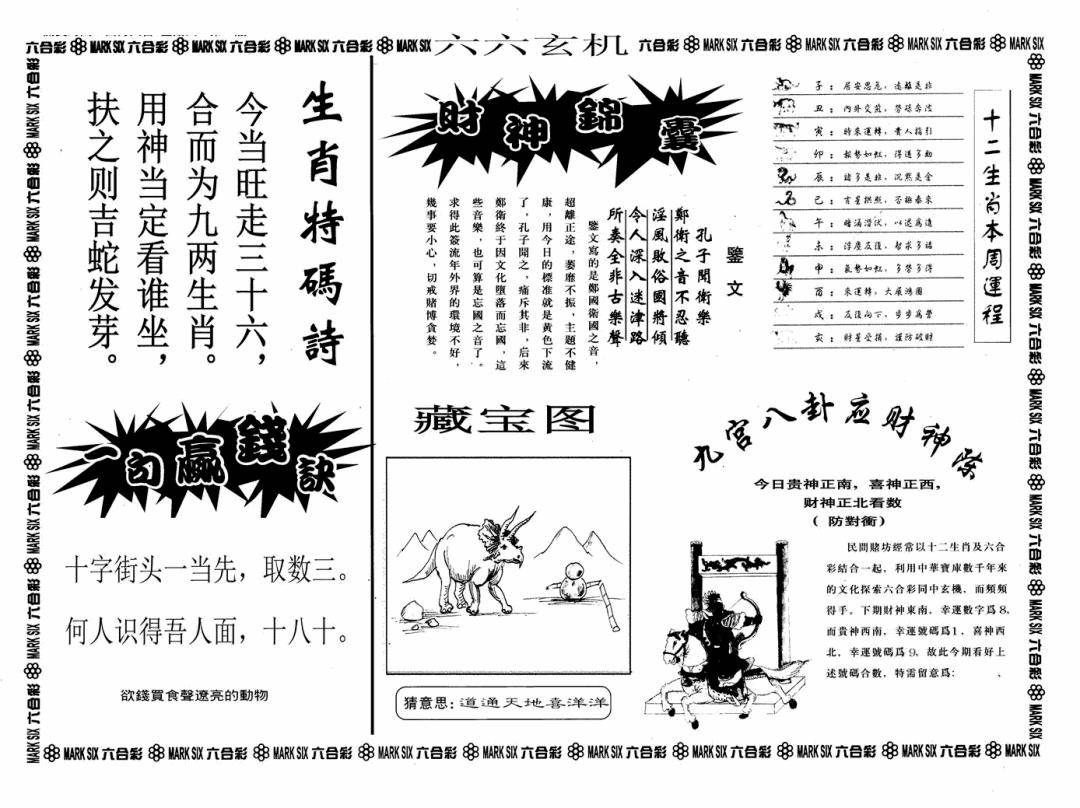 六合彩 MARK SIX 六合彩 MARK SIX 六合彩 MARK SIX 六合彩 MARK SIX 六六玄机 六合彩 MARK SIX 六合彩 MARK SIX 六合彩 MARK SIX 六合彩 MARK SIX
生肖特碼詩
今当旺走三十六，
合而为九两生肖。
用神当定看谁坐，
扶之则吉蛇发芽。
一句贏錢訣
十字街头一当先，取数三。
何人识得吾人面，十八十。
欲錢買食聲遼亮的動物
財神錦囊
鑒文
孔子聞衛樂
鄭衛之音不忍聽
淫風敗俗國將傾
令人深入迷津路
所奏全非古樂聲
鑒文寫的是鄭國衛國之音，
超離正途，萎靡不振，主題不健
康，用今日的標准就是黄色下流
了，孔子聞之，痛斥其非，后來
鄭衛終于因文化墮落而忘國，這
些音樂，也可算是忘國之音了。
求得此簽流年外界的環境不好，
幾事要小心，切戒賭博貪婪。
藏宝图
猜意思：道通天地喜洋洋
十二生尚本周運程
子：居安思危，遠離是非
丑：内外交煎，勞碌奔波
寅：時來運轉，貴人指引
卯：
辰：諸多是非，沉默是金
巳：
午：
未：
申：氣勢如虹，多勞多得
酉：來運轉，大展鴻圖
戌：
亥：財星受損，謹防破財
九宫八卦应财神
今日贵神正南，喜神正西，
财神正北看数
（防對衝）
民間賭坊經常以十二生肖及六合
彩結合一起，利用中華寶庫數千年來
的文化探索六合彩同中玄機，而頻頻
得手。下期財神東南，幸運數字爲8，
而貴神西南，幸運號碼爲1，喜神西
北，幸運號碼爲9，故此今期看好上
述號碼合數，特需留意爲：
MARK SIX 六合彩 MARK SIX 六合彩 MARK SIX 六合彩 MARK SIX 六合彩 MARK SIX 六合彩 MARK SIX 六合彩 MARK SIX 六合彩 MARK SIX 六合彩 MARK SIX 六合彩 MARK SIX